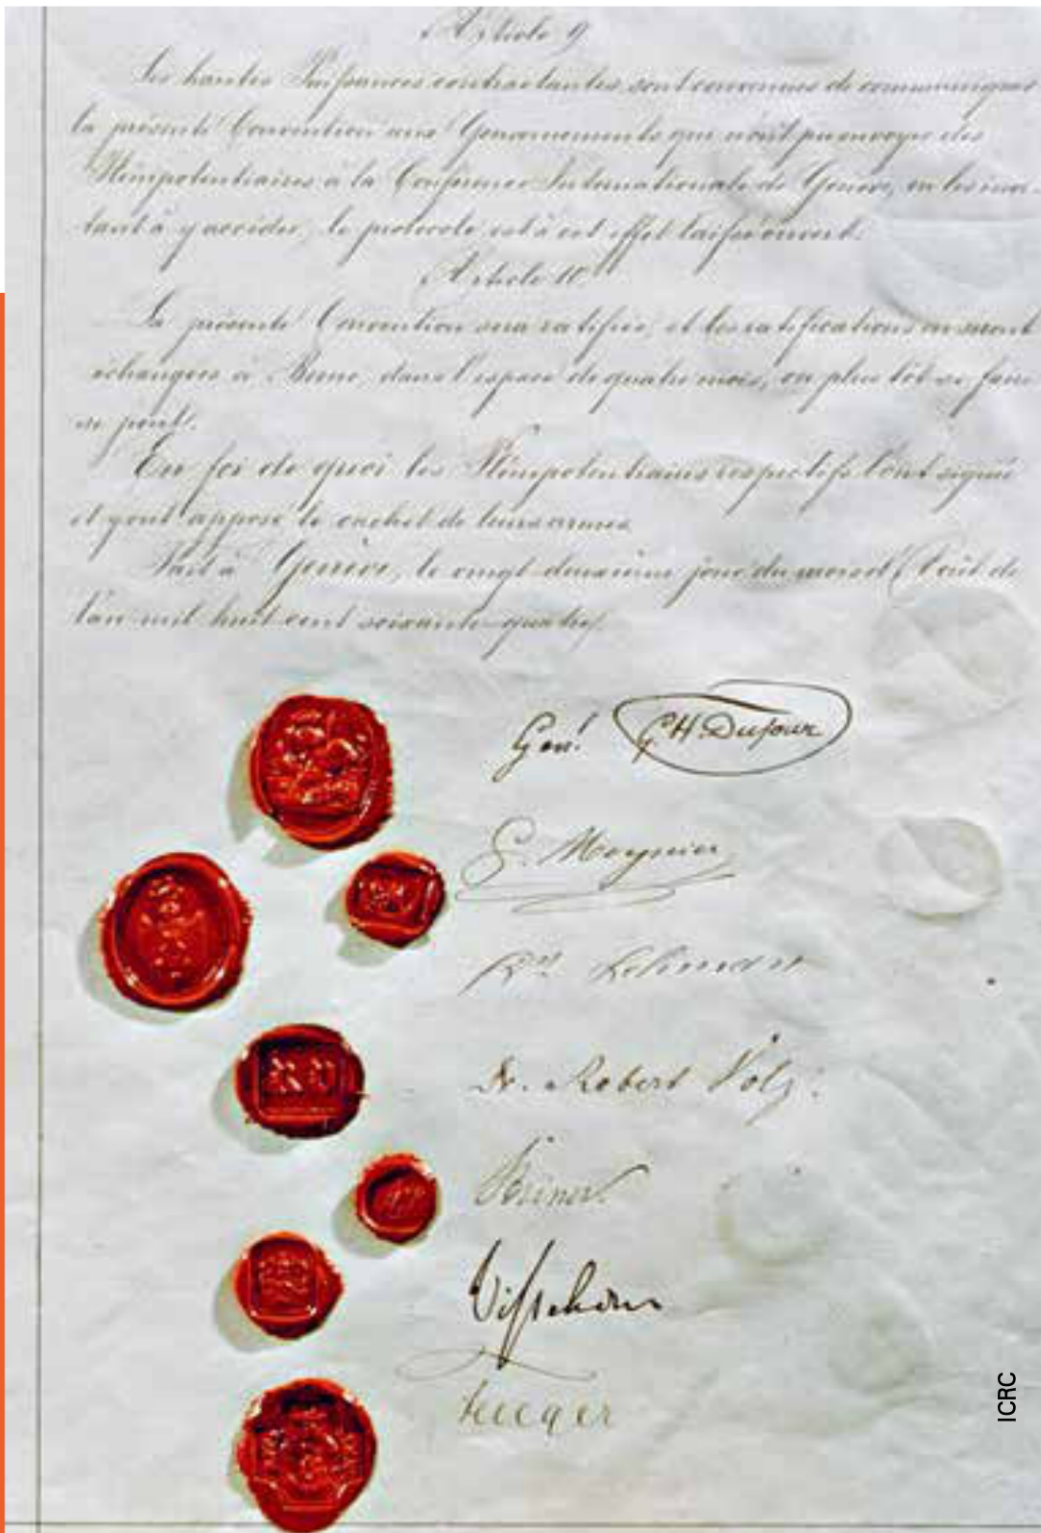 Article 9
Les hautes Puissances contractantes sont convenues de communiquer
la présente Convention aux Gouvernements qui n'ont pu envoyer des
Plénipotentiaires à la Conférence Internationale de Genève, en les invi-
tant à y accéder; le protocole est à cet effet laissé ouvert.
Article 10
La présente Convention sera ratifiée, et les ratifications en seront
échangées à Berne, dans l'espace de quatre mois, ou plus tôt si faire
se peut.
En foi de quoi les Plénipotentiaires respectifs l'ont signée
et y ont apposé le cachet de leurs armes.
Fait à Genève, le vingt-deuxième jour du mois d'Août de
l'an mil huit cent soixante-quatre.
Genl. GH. Dufour
G. Moynier
Dr. Lehmann
Dr. Robert Volz.
Steiner.
Visschers
ICRC